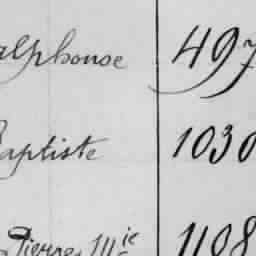 alphonse 497
Baptiste 1030
Pierre M<sup>ie</sup> 1108